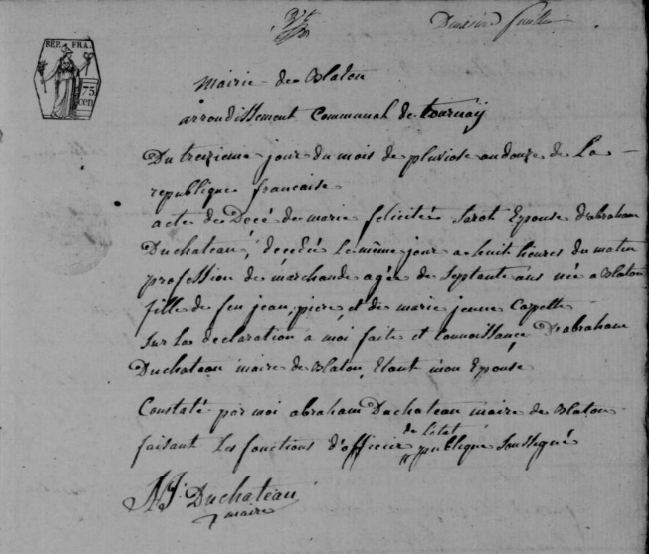 REP. FRA.
75
cen
mairie de Blaton
arrondissement Communal de tournay
Du treizieme jour du mois de pluviose an douze de La
republique francaise
acte de Decé de marie felicité Sarot Epouse d'abraham
Duchateau, decedée Le même jour a huit heures du matin
profession de marchande agée de Septante ans née a Blaton
fille de feu jean, piere, et de marie jeune Capelle
Sur La declaration a moi faite et Connaissance D'abraham
Duchateau maire de Blaton, Etant mon Epouse
Constaté par moi abraham Duchateau maire de Blaton
faisant Les fonctions d'officier de L'etat publique Soussigné
AJ. Duchateau
maire